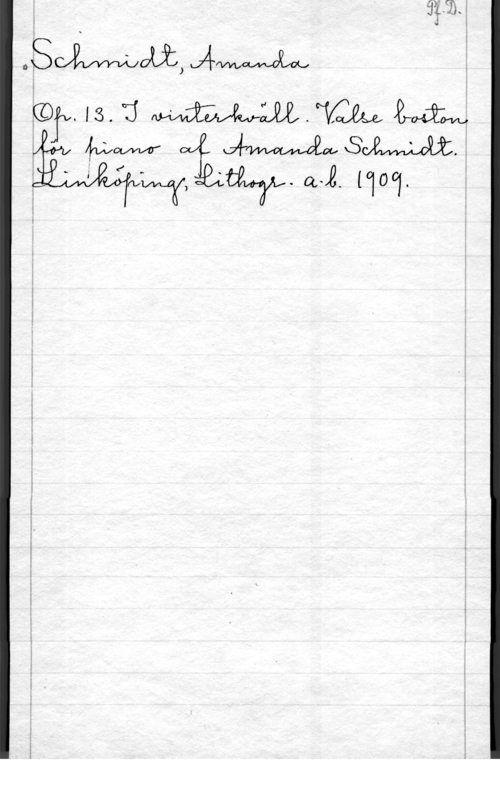 Pf.D.
Schmidt, Amanda
Op. 13. I vinterkväll. Valse boston
för piano af Amanda Schmidt.
Linköping, Lithogr. a.-b. 1909.